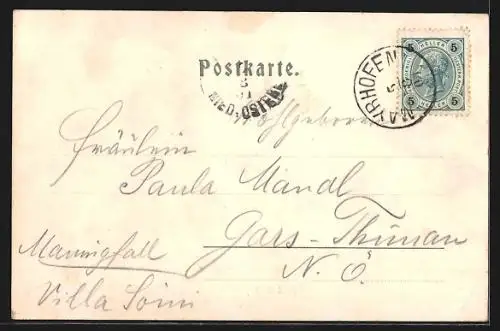 Postkarte.
5 HELLER 5
5 5
MAYRHOFEN
NIED.-ÖSTERR
Wohlgeboren
Fräulein
Paula Mandl
Gars-Thunau
N. Ö.
Mannigfall
Villa